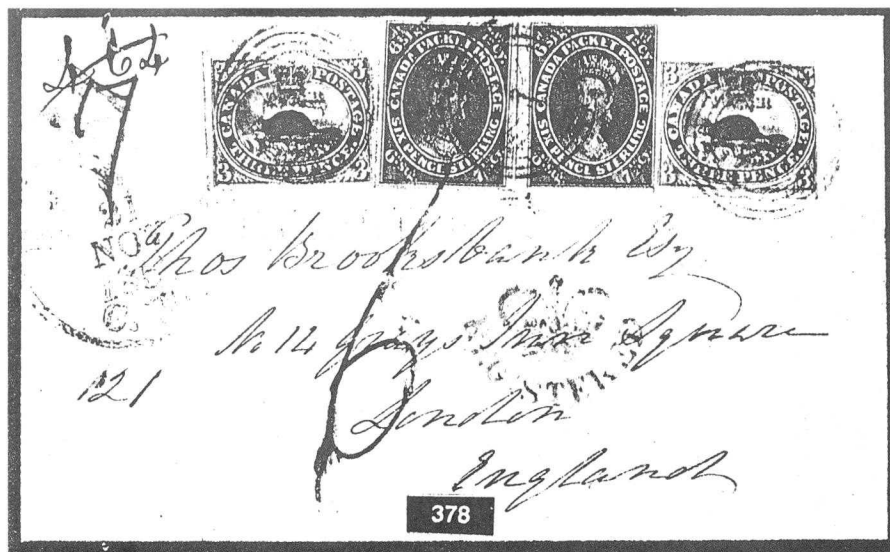 CANADA POSTAGE
THREE PENCE
3 3 3 3
6d Stg. 7½d Cy.
CANADA PACKET POSTAGE
SIX PENCE STERLING
6d Stg. 7½d Cy.
CANADA PACKET POSTAGE
SIX PENCE STERLING
CANADA POSTAGE
THREE PENCE
3 3 3 3
NO
Thos Brooksbank Esq
No 14 Grays Inn Square
121
6
London
England
378